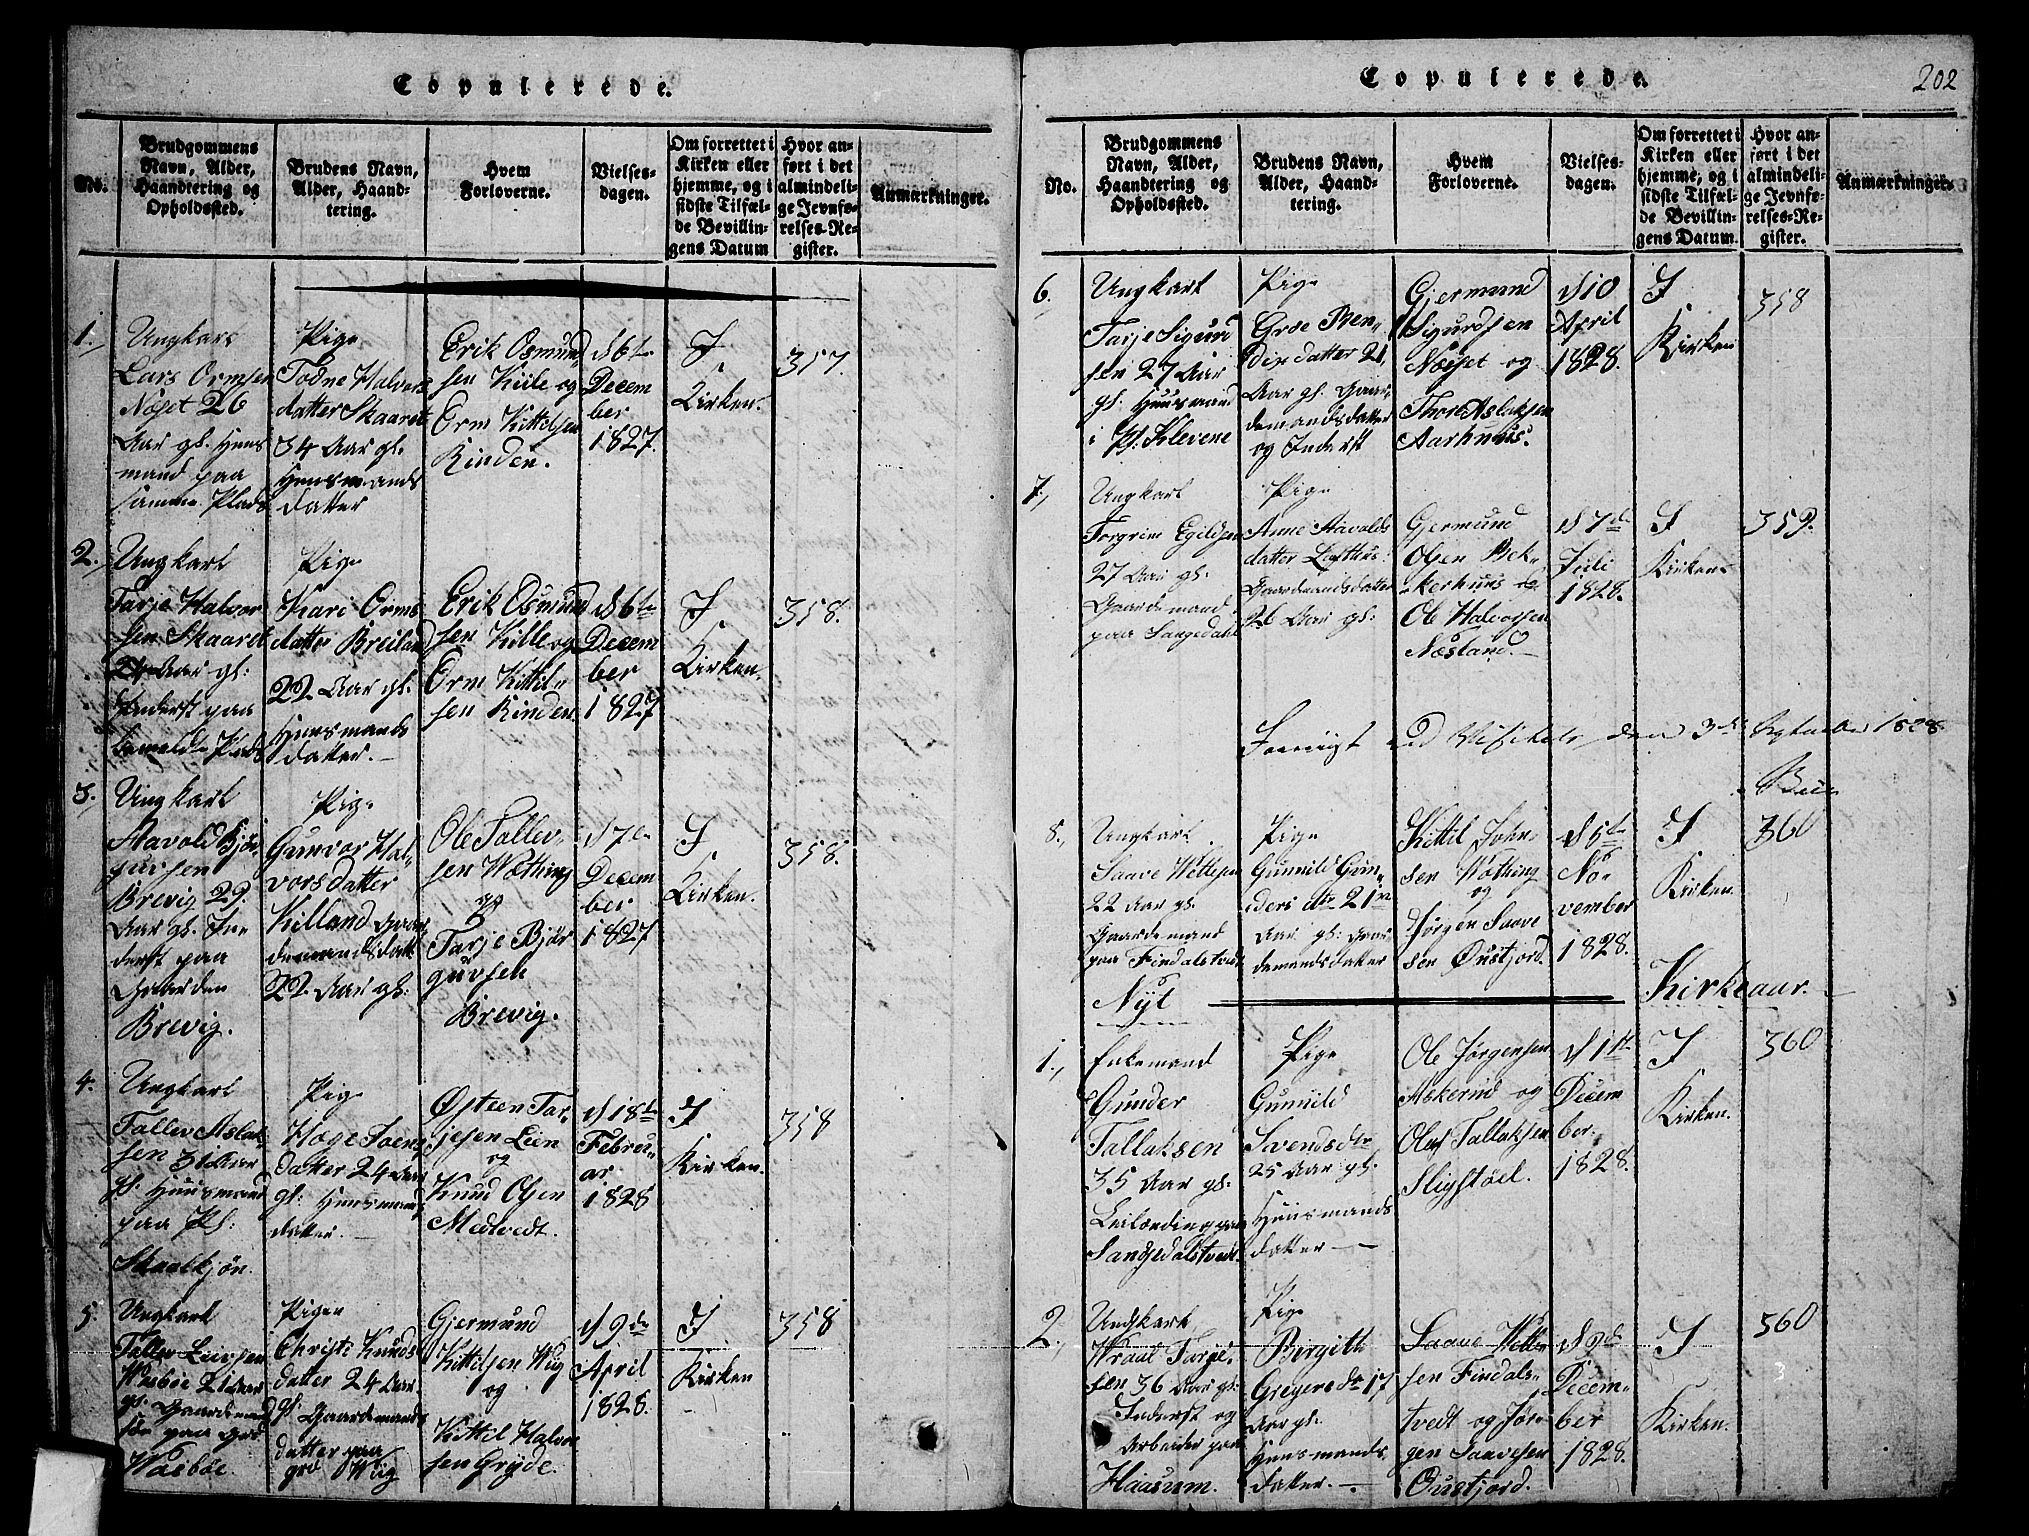 Copulerede.
No.
Brudgommens
Navn, Alder,
Haandtering og
Opholdssted.
Brudens Navn,
Alder, Haand-
tering.
Hvem
Forloverne.
Vielses-
dagen.
Om forrettet i
Kirken eller
hjemme, og i
sidste Tilfæl-
de Bevillin-
gens Datum
Hvor an-
ført i det
almindeli-
ge Jevnfø-
relses-Re-
gister.
Anmærkninger.
1.
Ungkarl
Lars Ormsen
Næset 26
Aar gl. Huus
mand paa
samme Plads
Pige
Todne Halvors
datter Skaaret
34 Aar gl.
Huusmands
datter
Erik Osmund
sen Kiile og
Orm Kittilsen
Rinden.
d 6te
Decem
ber
1827.
I
Kirken.
317.
2.
Ungkarl
Tarje Halvor
sen Skaaret
24 Aar gl:
Inderst paa
Plads
Pige
Kari Orms
datter Breiland
22 Aar gl.
Huusmands
datter.
Erik Osmund
sen Kille og
Orm Kittil
sen Rinden
d 6te
Decem
ber
1827
I
Kirken.
358.
3.
Ungkarl
Aavold Bjør
guvsen
Brevig 29.
Aar gl. In
derst paa
Gaarden
Brevig.
Pige
Gunvor Hal
vorsdatter
Killand Gaar
demandsdatt
22. Aar gl:
Ole Tollev
sen Wæthing
og
Tarje Bjør
guvsen
Brevig.
d 7de
Decem
ber
1827
I
Kirken.
358.
4.
Ungkarl
Tallev Aslak
sen 31 Aar
gl. Huusmand
paa Pl:
Skaalkjøn.
Pige
Høge Soens
datter 24 Aar
gl: Huusmands
datter.
Østeen Tar
jesen Lien
og
Knud Olsen
Medtvedt.
d 18de
Februu
ar.
1828
I
Kirken.
358
5.
Ungkarl
Tallev Leivsen
Waaboe 21 Aar
gl. Gaardemand
søn paa grd
Waaboe.
Pigen
Christi Knuds
datter 24 Aar
gl Gaardemands
datter paa
grd Wiig
Gjermund
Kittilsen Wiig
og
Kittil Halvor
sen Gryde.
d 9de
April
1828.
I
Kirken
358
Copulerede.
202
No.
Brudgommens
Navn, Alder,
Haandtering og
Opholdssted.
Brudens Navn,
Alder, Haand-
tering.
Hvem
Forloverne.
Vielses-
dagen.
Om forrettet i
Kirken eller
hjemme, og i
sidste Tilfæl-
de Bevillin-
gens Datum.
Hvor an-
ført i det
almindeli-
ge Jevnfø-
relses-Re-
gister.
Anmærkninger.
6.
Ungkarl
Tarje Sigurd
sen 27 Aar
gl. Huusmand
i Pl. Klevene
Pige
Groe Ben
dix datter 21
Aar gl. Gaar
demandsdatter
og Inderst
Gjermund
Sigurdsen
Næset og
Thore Aslaksen
Aarhuus.
d 10
April
1828.
I
Kirken
358
7.
Ungkarl
Torgrim Egildsen
27 Aar gl:
Gaardemand
paa Sangedahl
Pige
Anne Aavolds
datter Lofthus
Gaardmandsdatter
26 Aar gl:
Gjermund
Olsen Bek
kerhuus og
Ole Halvorsen
Næsland.
d 7de
Juli
1828.
I
Kirken
359.
ved Visitats den 3die September 1828.
8.
Ungkarl
Saave Wettesen
22 Aar gl.
Gaardemand
paa Findalstvedt
Pige
Gunnild Gun
ders dtr 21
Aar gl: Gaar
demandsdatter
Kittil John
sen Wothing
og
Jørgen Saave
sen Øustjord.
d 5te
No
vember
1828.
I
Kirken.
360
Nyt Kirkeaar.
1.
Enkemand
Gunder
Tallaksen
35 Aar gl:
Leilænding paa
Sangedalstvedt
Pige
Gunnild
Svendsdtr
25 Aar gl.
Huusmands
datter
Ole Jørgensen
Askerud og
Oluf Tallaksen
Sligstøel.
d 1te
Decem
ber.
1828.
I
Kirken.
360
2.
Ungkarl
Wraal Tarjei
sen 36 Aar gl:
Inderst og
Arbeider paa
Haasum.
Pige
Birgitte
Greyers dtr 17
Aar gl.
Huusmands
datter.
Saave Wette
sen Findals
tvedt og Jør
gen Saavesen
Oustjord.
d 9de
Decem
ber
1828.
I
Kirken.
360